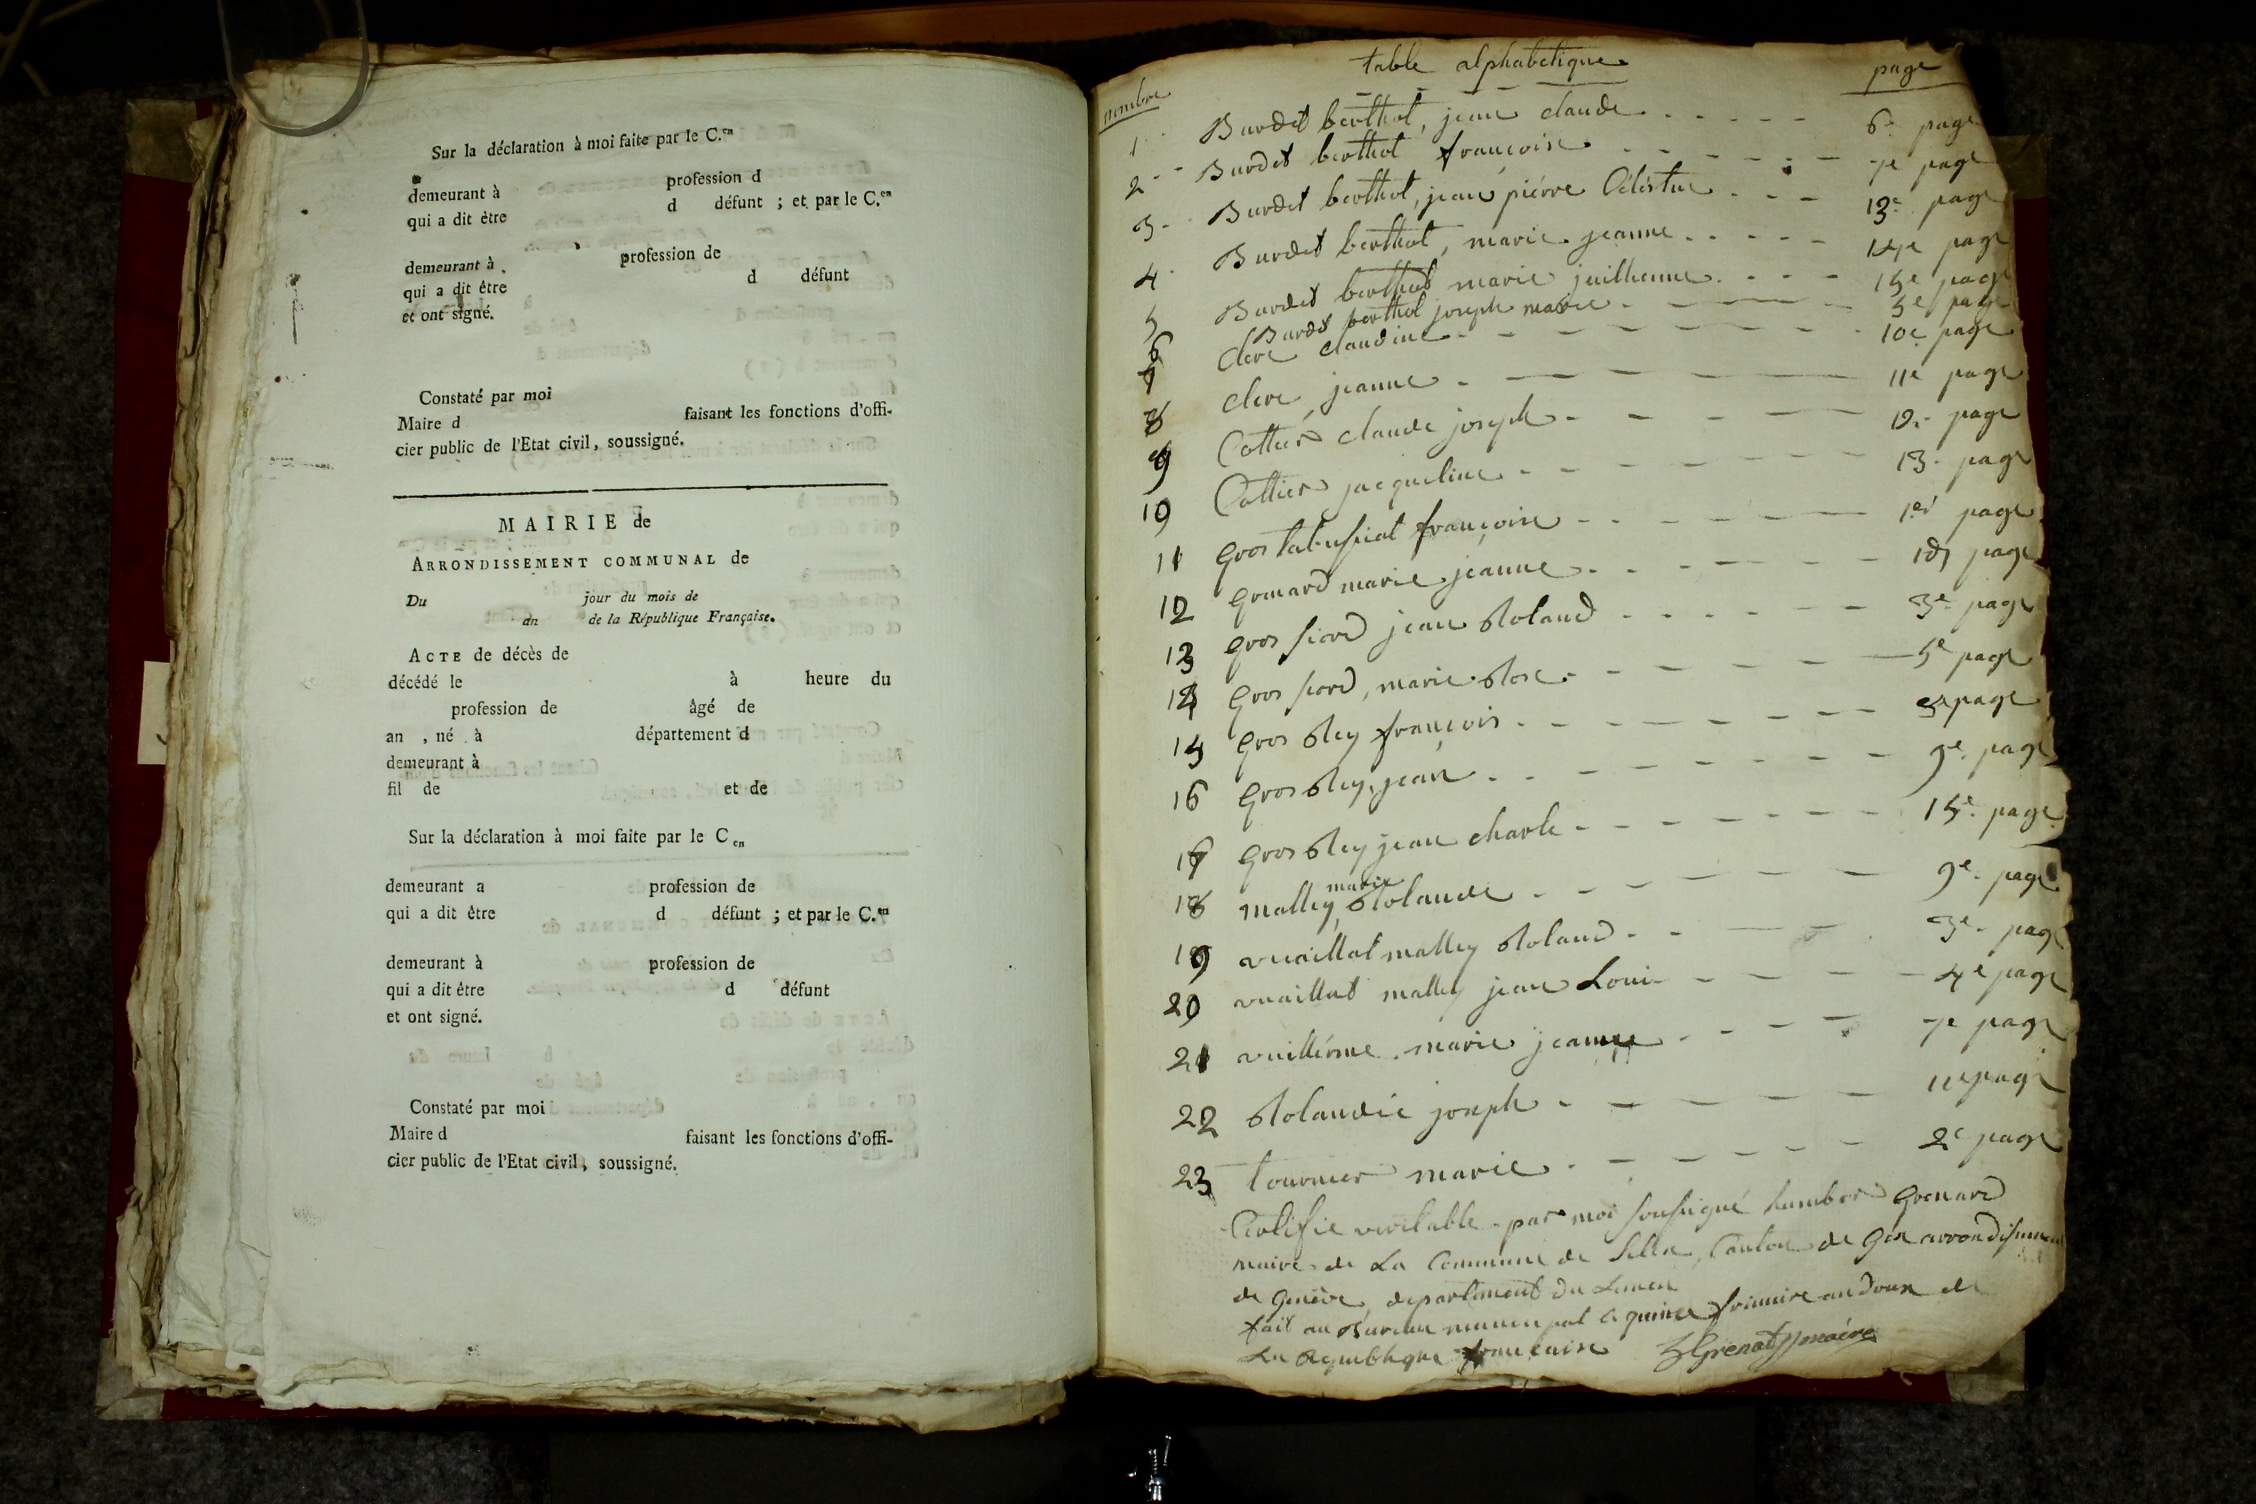 Sur la déclaration à moi faite par le C.en
demeurant à profession d
qui a dit être d défunt ; et par le C.en
demeurant à profession de
qui a dit être d défunt
et ont signé.
Constaté par moi
Maire d faisant les fonctions d'offi-
cier public de l'Etat civil, soussigné.
MAIRIE de
ARRONDISSEMENT COMMUNAL de
Du jour du mois de
an de la République Française.
ACTE de décès de
décédé le à heure du
profession de âgé de
an , né à département d
demeurant à
fil de et de
Sur la déclaration à moi faite par le C en
demeurant a profession de
qui a dit être d défunt ; et par le C.en
demeurant à profession de
qui a dit être d défunt
et ont signé.
Constaté par moi
Maire d faisant les fonctions d'offi-
cier public de l'Etat civil, soussigné.
nombre table alphabetique page
1 Burdet berthet, jean claude 6e page
2 Burdet berthet françoise 7e page
3 Burdet berthet, jean pierre Célestin 13e page
4 Burdet berthet, marie jeanne 14e page
5 Burdet berthet marie juilhenne 15e page
6 Burdet berthet joseph marie 5e page
7 clerc claudine 10e page
8 clerc jeanne 11e page
9 Cottier claude joseph 12 page
10 Cottier jacqueline 13 page
11 gros tabussiat françoise 1er page
12 grenard marie jeanne page
13 gros fiord jean Roland 3e page
14 gros fiord, marie Rose 5e page
15 gros Rey françois page
16 gros Rey, jean 9e page
17 gros Rey jean charle 15e page
18 malley marie Rolande 9e page
19 vuaillat malley Roland 3e page
20 vuaillat malley jean Loui 4e page
21 vuillerme marie jeanne 7e page
22 Rolandie joseph page
23 tournier marie 2e page
Certifie veritable par moi soussigné humbert Grenard
maire de La Commune de Lelex, Canton de Gex arrondissement
de Genève, departement du Leman
fait au Bureau municipal le quinze frimaire an douze de
La Republique francaise Grenard maire